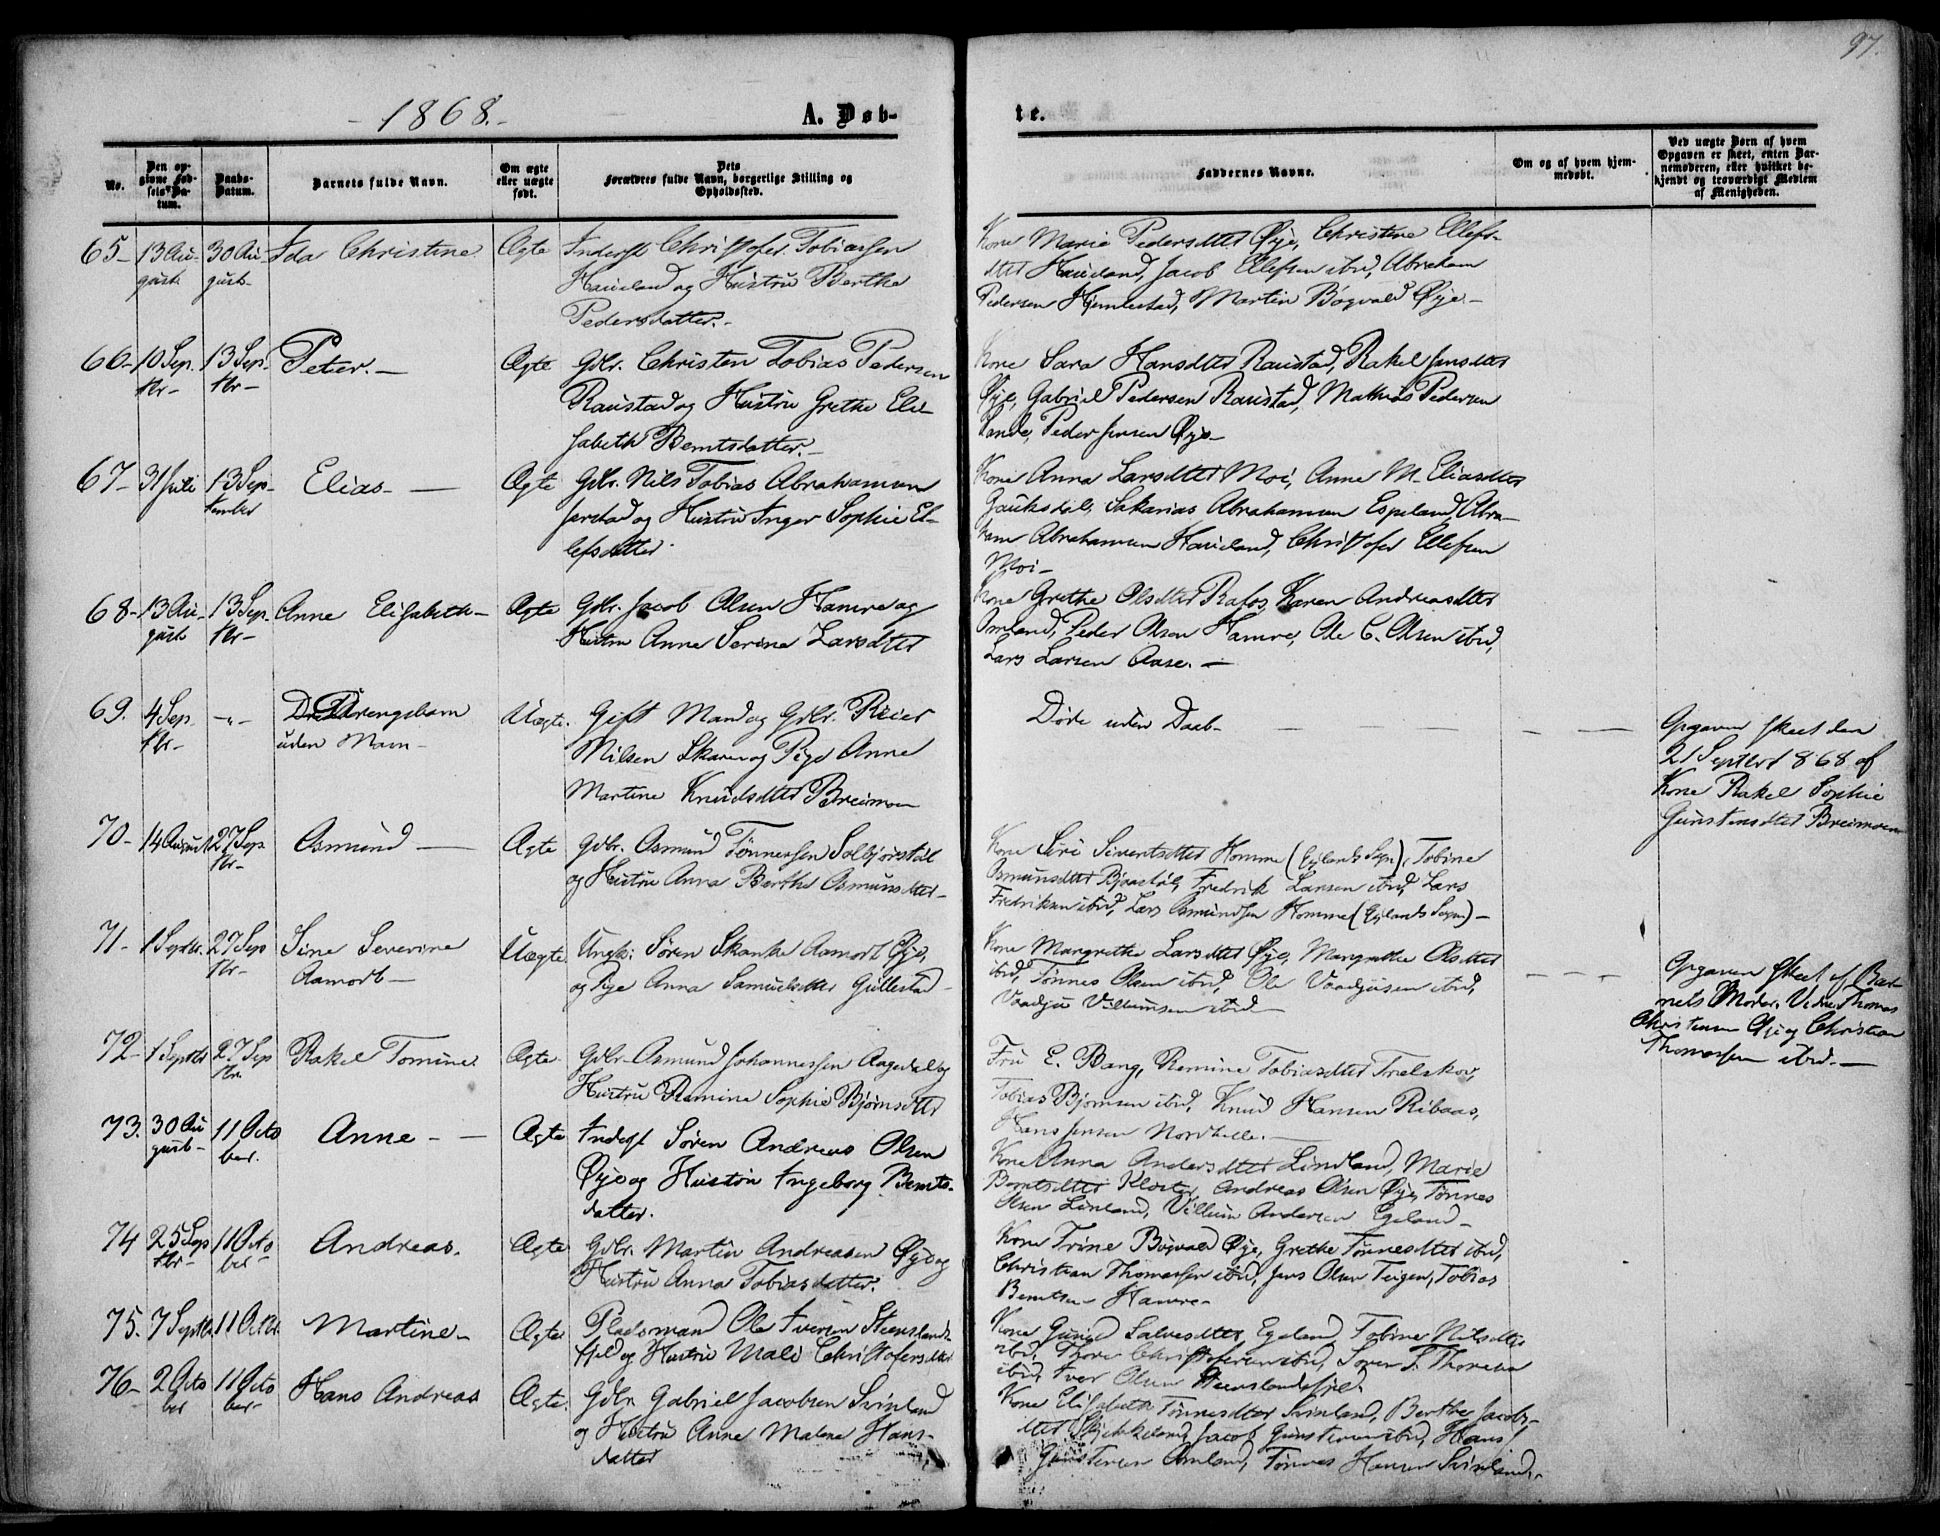 97.
- 1868. -
A. Døb-
te.
No.
Den op-
givne Fød-
sels-Da-
tum.
Daabs-
Datum.
Barnets fulde Navn.
Om ægte
eller uægte
født.
Dets
Forældres fulde Navn, borgerlige Stilling og
Opholdssted.
Faddernes Navne.
Om og af hvem hjem-
medøbt.
Ved uægte Børn af hvem
Opgaven er skeet, enten Bar-
nemoderen, eller hvilket be-
kjendt og troværdigt Medlem
af Menigheden.
65- 13 Au- 30 Au- Ida Christine Ægte Inderst Christofer Tobiassen
gust. gust- Haueland og Hustru Berthe
Pedersdatter.-
Kone Marie Pedersdtter Øye, Christine Ellefs-
dtter Haueland, Jacob Ellefsen ibid, Abraham
Pedersen Hjemlestad, Martin Bøgvald Øye.-
66- 10 Sep. 13 Sep. Peter. - Ægte Gdbr. Christen Tobias Pedersen
tbr- tbr- Raustad og Hustru Grethe Eli-
sabeth Berntsdatter.-
Kone Sara Hansdtter Raustad, Rakel Jensdtter
Øye, Gabriel Pedersen Raustad, Mathias Pedersen
Sande, Peder Jensen Øye-
67- 31 Juli 13 Sep- Elias. - Ægte Gdbr. Nils Tobias Abrahamsen
tember Jerstad og Hustru Inger Sophie El-
lefsdatter.
Kone Anna Larsdtter Moi, Anne M. Eliasdtter
Gauksdal, Sakarias Abrahamsen Espeland, Abra-
ham Abrahamsen Haueland, Christofer Ellefsen
Moi-
68- 13 Au- 13 Sep. Anne Elisabeth- Ægte Gdbr. Jacob Olsen Hamre og
gust tbr- Hustru Anne Serine Larsdtter
Kone Grethe Olsdtter Rafos, Karen Andreasdtter
Omland, Peder Olsen Hamre, Ole C. Olsen ibid,
Lars Larsen Aase. -
69. 4 Sep. -"- Drengebarn Uægte. Gift Mand og Gdbr. Reier
tbr- uden Navn- Nilsen Skaren og Pige Anne
Martine Knudsdtter Breimoen
Døde uden Daab-
Opgaven skeet den
21 Septbr 1868 af
Kone Rakel Sophie
Gunstensdtter Breimoen
70- 14 August 27 Sep. Asmund - Ægte Gdbr. Asmund Tønnessen Solbjørstøl
tbr- og Hustru Anna Berthe Asmundsdtter-
Kone Siri Sivertsdtter Homme (Egelands Sogn), Tobine
Asmundsdtter Bjørstøl, Fredrik Larsen ibid, Lars
Fredriksen ibid, Lars Asmundsen Homme (Egelands Sogn)-
71- 1 Septbr. 27 Sep Sine Severine Uægte Ungk: Søren Skanke Aamodt Øye,
tbr- Aamodt- og Pige Anna Samuelsdtter Gullestad-
Kone Margrethe Larsdtter Øye, Margrethe Olsdtter
ibid, Tønnes Olsen ibid, Ole Vaadjusen ibid,
Vaadju Villumsen ibid-
Opgaven skeet af Bar-
nets Moder. Vidne Thomas
Christensen Øye og Christian
Thomassen ibid.-
72- 1 Septbr 27 Sep Rakel Tomine. Ægte. Gdbr- Asmund Johannessen Aagedal og
tbr. Hustru Remine Sophie Bjørnsdtter
Fru E. Bang, Remine Tobiasdtter Trelskov,
Tobias Bjørnsen ibid, Knud Hansen Ribaas,
Hans Jensen Nordhelle.-
73. 30 Au 11 Octo Anne - - Ægte Inderst Søren Andreas Olsen
gust- ber. Øye og Hustru Ingeborg Bernts-
datter.
Kone Anna Andersdtter Lindland, Marie
Berntsdtter Kloster, Andreas Olsen Øye, Tønnes
Olsen Lindland, Villum Andersen Egeland-
74 25 Sep 11 Octo Andreas. Ægte Gdbr. Martin Andreasen Øye og
tbr- ber- Hustru Anna Tobiasdatter.
Kone Trine Bøgvald Øye, Grethe Tønnesdtter ibid,
Christian Thomassen ibid, Jens Olsen Teigen, Tobias
Berntsen Hamre-
75. 7 Septbr 11 Octbr. Martine- Ægte Pladsmand Ole Iversen Steenslands-
fjeld og Hustru Mali Christofersdtter
Kone Gunild Salvesdtter Egeland, Tobine Nilsdtter
ibid, Thore Christofersen ibid, Søren T. Thoresen
ibid, Iver Olsen Steenslandsfjeld.
76- 2 Octo 11 Octo Hans Andreas Ægte. Gdbr Gabriel Jacobsen Svinland
ber ber- og Hustru Anne Malene Hans-
datter
Kone Elisabeth Tønnesdtter Svinland, Berthe Jacobs-
dtter Skjekkeland, Jacob Gunstensen ibid, Hans
Gunstensen Omland, Tønnes Hansen Svinland.-